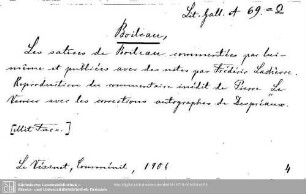 Lit. Gall. A 69 = 2
Boileau,
Les satires de Boileau commentées par lui-
même et publiées avec des notes par Frédéric Lachèvre.
Reproduction du commentaire inédit de Pierre Le
Verrier avec les corrections autographes de Despréaux.
[Mit Facs.]
Le Vésinet, Courménil, 1906
4